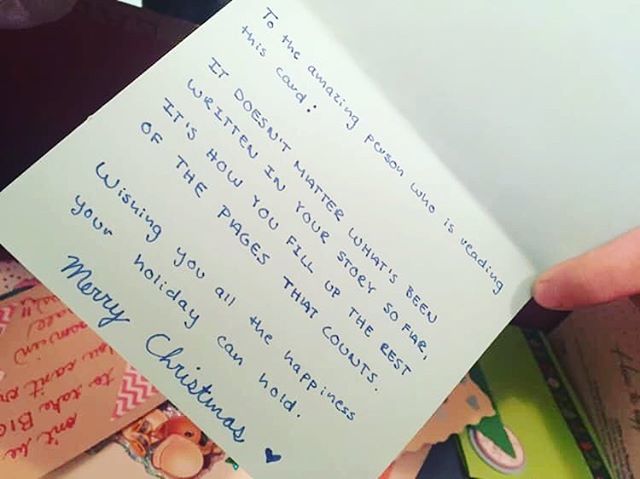 To the amazing person who is reading
this card:
IT DOESN'T MATTER WHAT'S BEEN
WRITTEN IN YOUR STORY SO FAR,
IT'S HOW YOU FILL UP THE REST
OF THE PAGES THAT COUNTS.
Wishing you all the happiness
your holiday can hold.
Merry Christmas ♥
you can't
to take